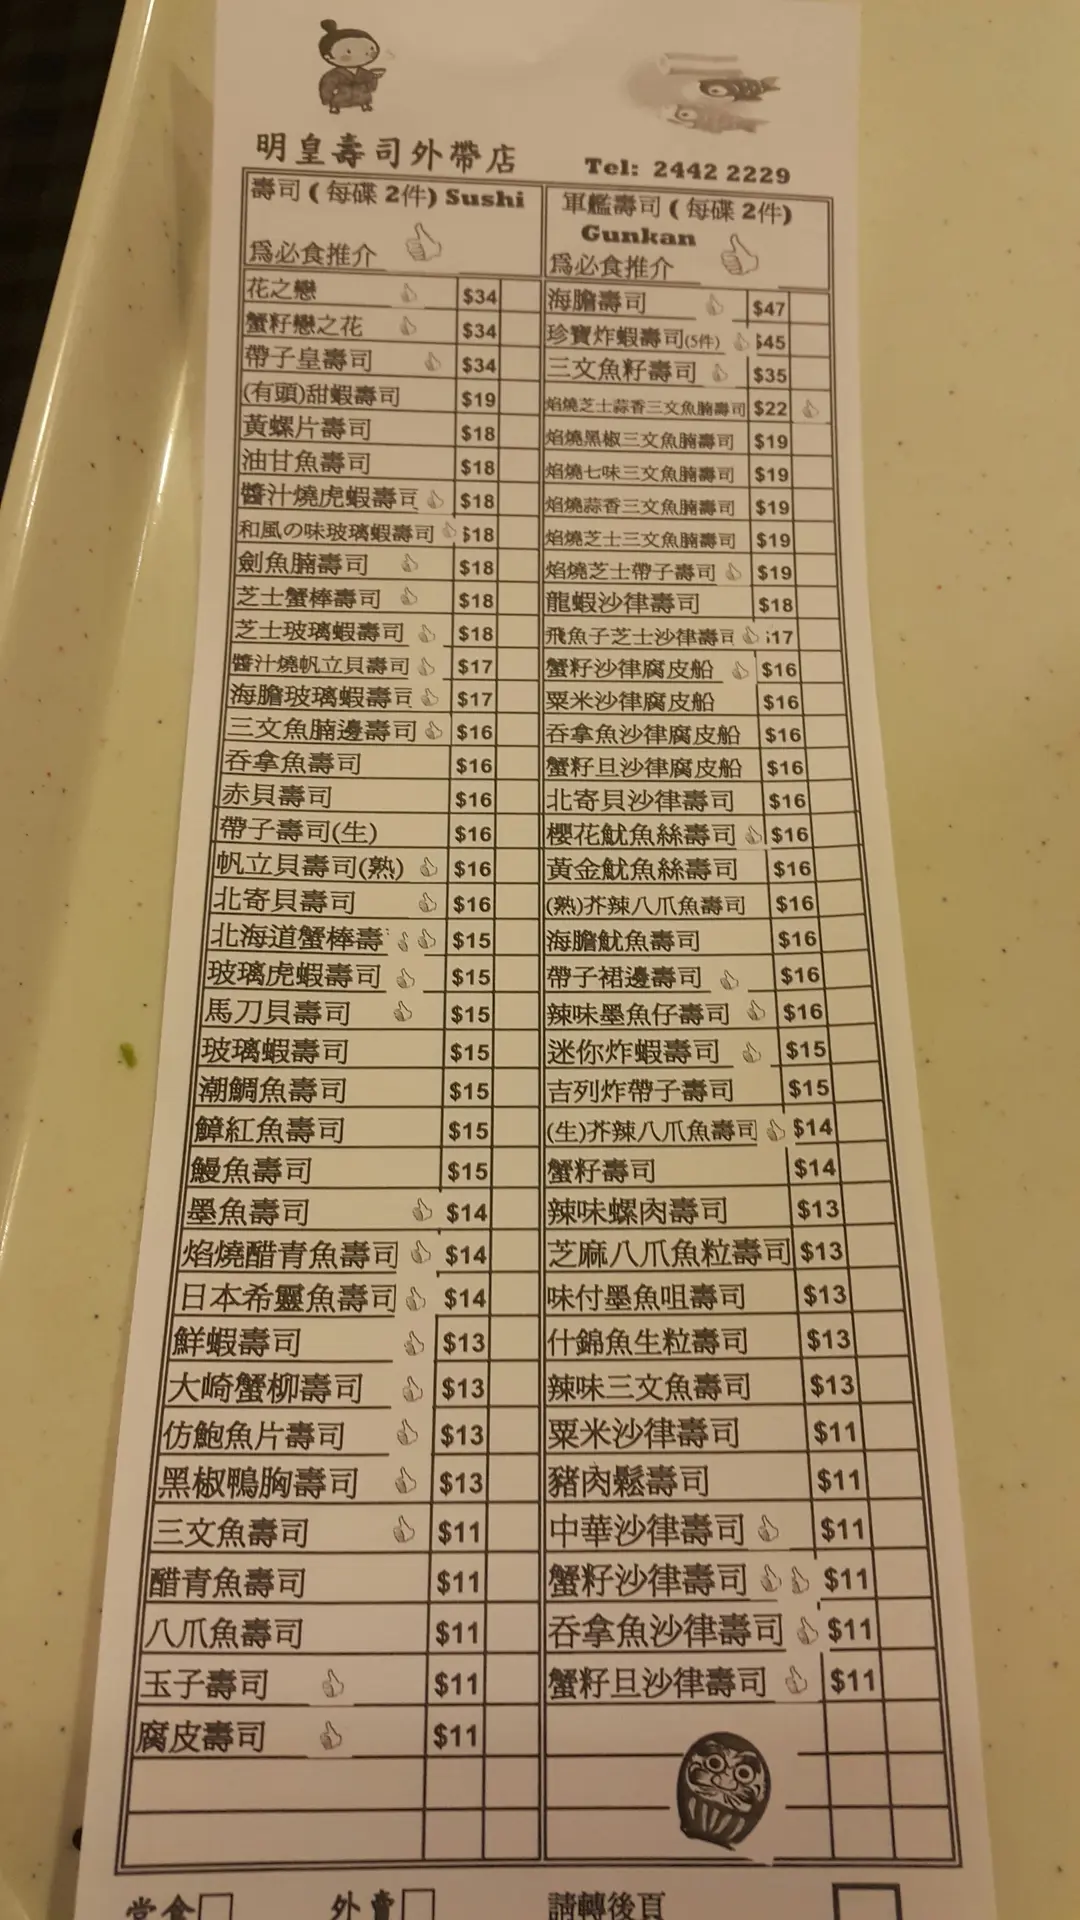 明皇壽司外帶店
Tel: 2442 2229
壽司 ( 每碟 2件) Sushi
爲必食推介
花之戀 $34
蟹籽戀之花 $34
帶子皇壽司 $34
(有頭)甜蝦壽司 $19
黃螺片壽司 $18
油甘魚壽司 $18
醬汁燒虎蝦壽司 $18
和風の味玻璃蝦壽司 $18
劍魚腩壽司 $18
芝士蟹棒壽司 $18
芝士玻璃蝦壽司 $18
醬汁燒帆立貝壽司 $17
海膽玻璃蝦壽司 $17
三文魚腩邊壽司 $16
吞拿魚壽司 $16
赤貝壽司 $16
帶子壽司(生) $16
帆立貝壽司(熟) $16
北寄貝壽司 $16
北海道蟹棒壽 $15
玻璃虎蝦壽司 $15
馬刀貝壽司 $15
玻璃蝦壽司 $15
潮鯛魚壽司 $15
鱆紅魚壽司 $15
鰻魚壽司 $15
墨魚壽司 $14
焰燒醋青魚壽司 $14
日本希靈魚壽司 $14
鮮蝦壽司 $13
大崎蟹柳壽司 $13
仿鮑魚片壽司 $13
黑椒鴨胸壽司 $13
三文魚壽司 $11
醋青魚壽司 $11
八爪魚壽司 $11
玉子壽司 $11
腐皮壽司 $11
軍艦壽司 ( 每碟 2件)
Gunkan
爲必食推介
海膽壽司 $47
珍寶炸蝦壽司(5件) $45
三文魚籽壽司 $35
焰燒芝士蒜香三文魚腩壽司 $22
焰燒黑椒三文魚腩壽司 $19
焰燒七味三文魚腩壽司 $19
焰燒蒜香三文魚腩壽司 $19
焰燒芝士三文魚腩壽司 $19
焰燒芝士帶子壽司 $19
龍蝦沙律壽司 $18
飛魚子芝士沙律壽司 $17
蟹籽沙律腐皮船 $16
粟米沙律腐皮船 $16
吞拿魚沙律腐皮船 $16
蟹籽旦沙律腐皮船 $16
北寄貝沙律壽司 $16
櫻花魷魚絲壽司 $16
黃金魷魚絲壽司 $16
(熟)芥辣八爪魚壽司 $16
海膽魷魚壽司 $16
帶子裙邊壽司 $16
辣味墨魚仔壽司 $16
迷你炸蝦壽司 $15
吉列炸帶子壽司 $15
(生)芥辣八爪魚壽司 $14
蟹籽壽司 $14
辣味螺肉壽司 $13
芝麻八爪魚粒壽司 $13
味付墨魚咀壽司 $13
什錦魚生粒壽司 $13
辣味三文魚壽司 $13
粟米沙律壽司 $11
豬肉鬆壽司 $11
中華沙律壽司 $11
蟹籽沙律壽司 $11
吞拿魚沙律壽司 $11
蟹籽旦沙律壽司 $11
堂食 外賣 請轉後頁